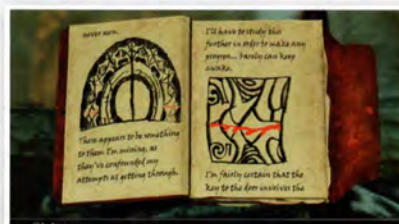 never seen.
There appears to be something
to them I'm missing, as
they've confounded my
attempts at getting through.
I'll have to study this
further in order to make any
progress... barely can keep
awake.
I'm fairly certain that the
key to the door involves the